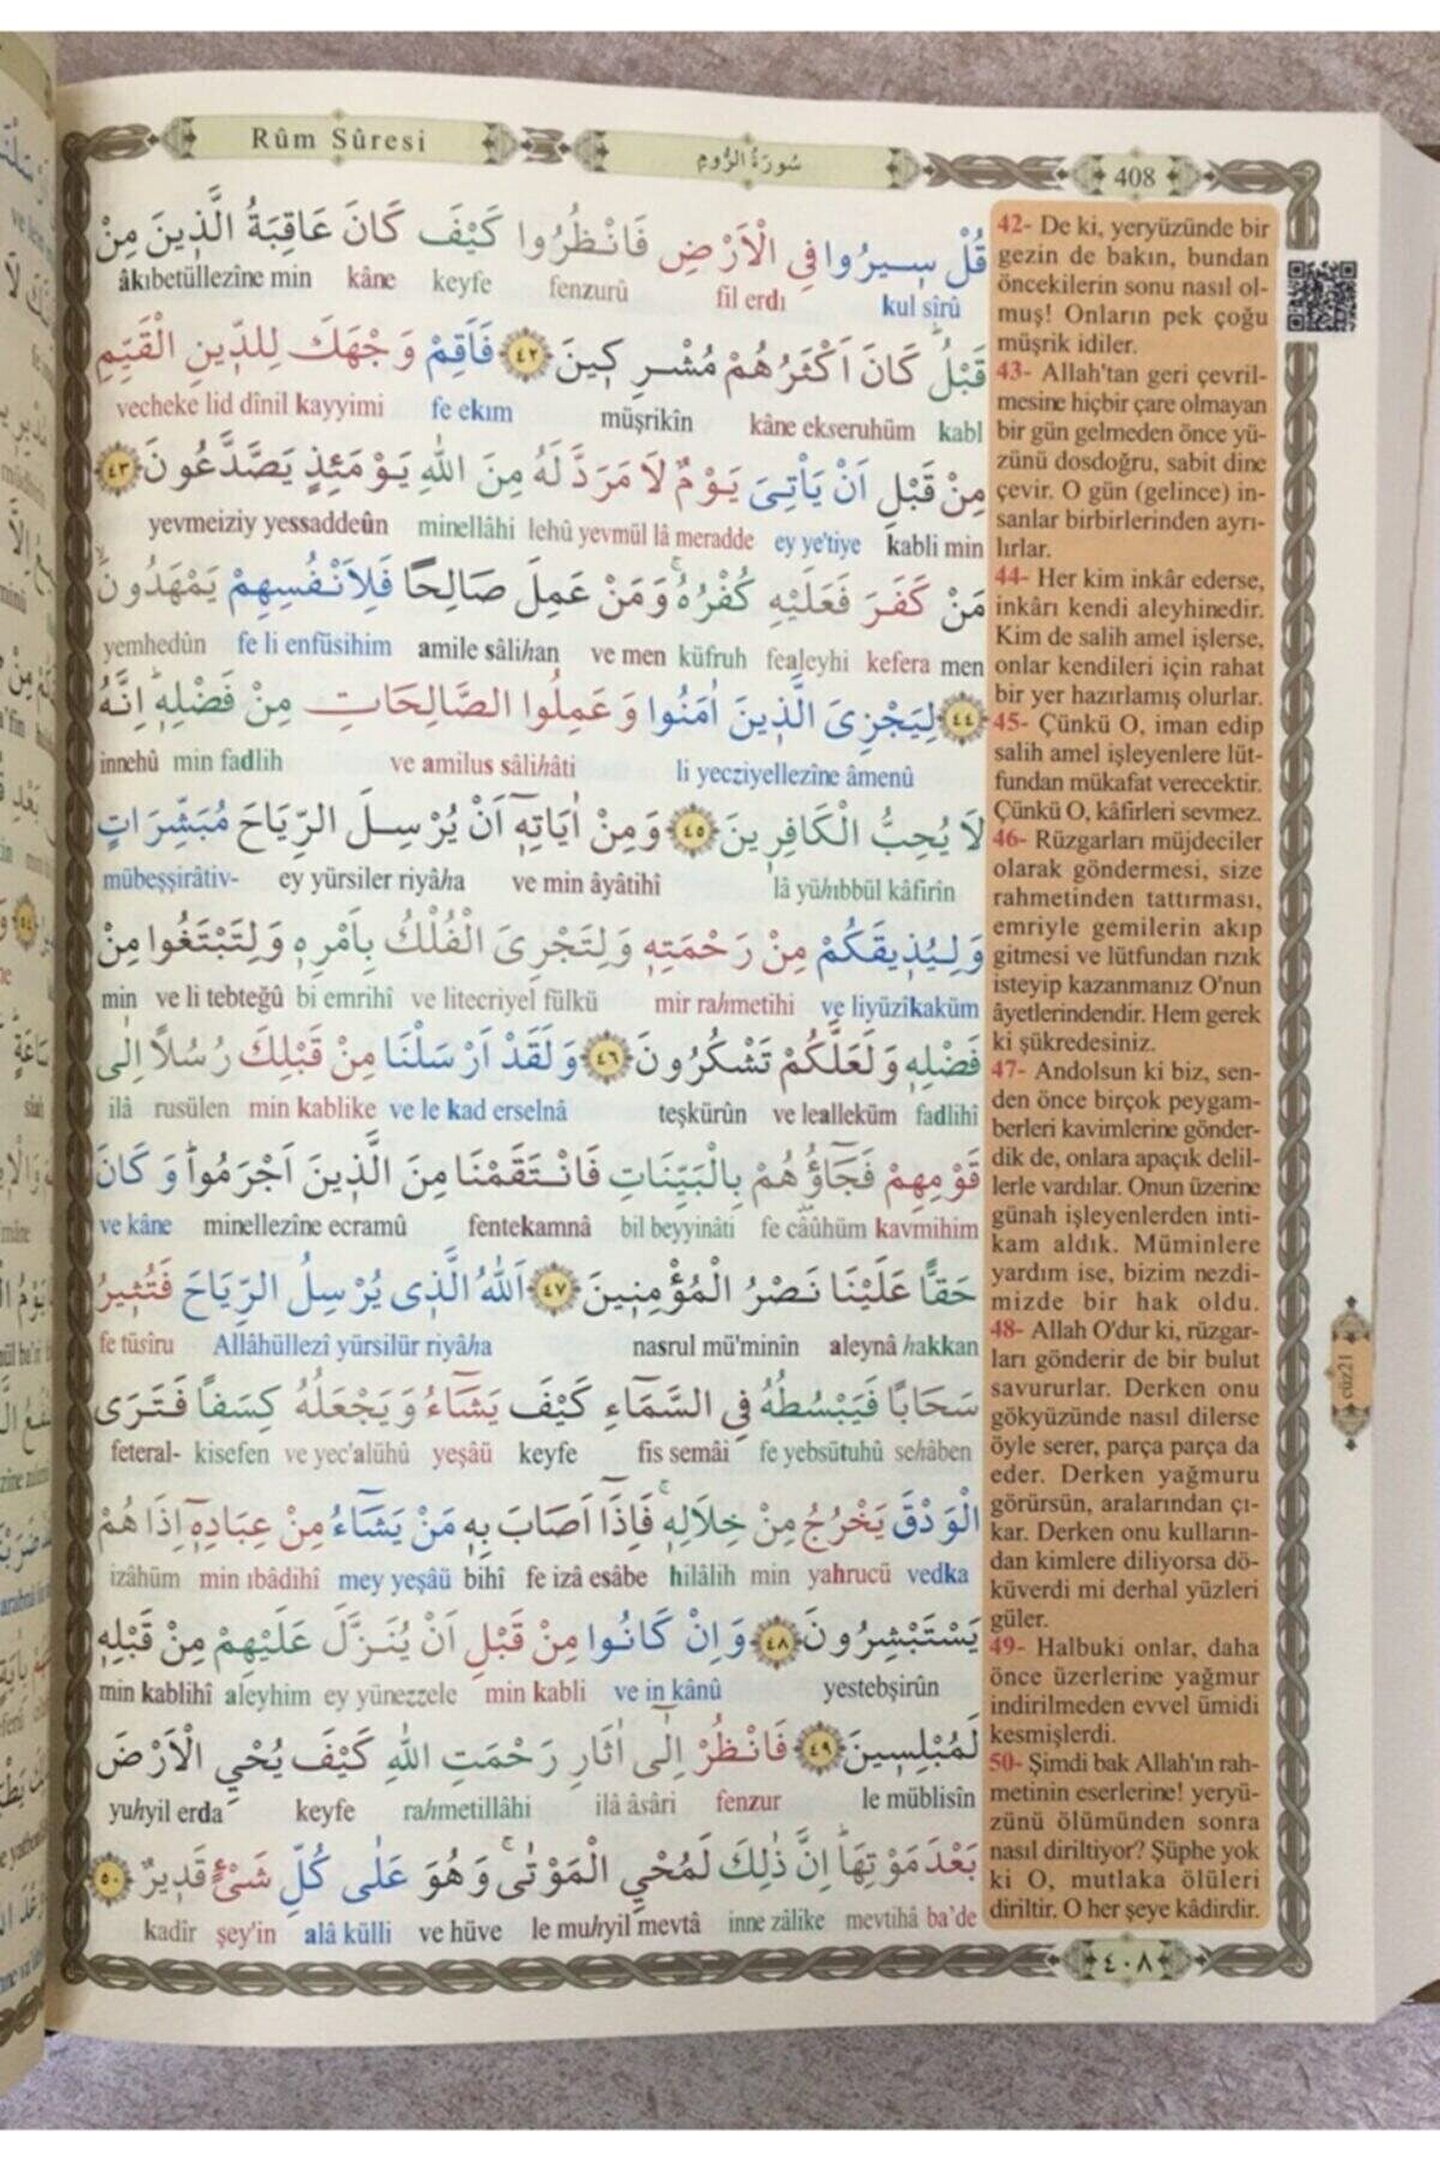 Rûm Sûresi
سُورَةُ الرُّومِ
408
قُلْ سِيرُوا فِي الْاَرْضِ فَانْظُرُوا كَيْفَ كَانَ عَاقِبَةُ الَّذِينَ مِنْ
kul sîrû fil erdı fenzurû keyfe kâne âkıbetüllezîne min
قَبْلُ كَانَ اَكْثَرُهُمْ مُشْرِكِينَ ﴿٤٢﴾ فَاَقِمْ وَجْهَكَ لِلدِّينِ الْقَيِّمِ
kabl kâne ekseruhüm müşrikîn fe ekım vecheke lid dînil kayyimi
مِنْ قَبْلِ اَنْ يَأْتِىَ يَوْمٌ لَا مَرَدَّ لَهُ مِنَ اللّٰهِ يَوْمَئِذٍ يَصَّدَّعُونَ ﴿٤٣﴾
kabli min ey ye'tiye yevmül lâ meradde lehû minellâhi yevmeiziy yessaddeûn
مَنْ كَفَرَ فَعَلَيْهِ كُفْرُهُ وَمَنْ عَمِلَ صَالِحًا فَلِاَنْفُسِهِمْ يَمْهَدُونَ
men kefera fealeyhi küfruh ve men amile sâlihan fe li enfüsihim yemhedûn
﴿٤٤﴾ لِيَجْزِىَ الَّذِينَ اٰمَنُوا وَعَمِلُوا الصَّالِحَاتِ مِنْ فَضْلِهِ اِنَّهُ
li yecziyellezîne âmenû ve amilus sâlihâti min fadlih innehû
لَا يُحِبُّ الْكَافِرِينَ ﴿٤٥﴾ وَمِنْ اٰيَاتِهِ اَنْ يُرْسِلَ الرِّيَاحَ مُبَشِّرَاتٍ
lâ yühıbbül kâfirîn ve min âyâtihî ey yürsiler riyâha mübeşşirâtiv-
وَلِيُذِيقَكُمْ مِنْ رَحْمَتِهِ وَلِتَجْرِىَ الْفُلْكُ بِاَمْرِهِ وَلِتَبْتَغُوا مِنْ
ve liyüzîkaküm mir rahmetihi ve litecriyel fülkü bi emrihî ve li tebteğû min
فَضْلِهِ وَلَعَلَّكُمْ تَشْكُرُونَ ﴿٤٦﴾ وَلَقَدْ اَرْسَلْنَا مِنْ قَبْلِكَ رُسُلًا اِلٰى
fadlihî ve lealleküm teşkürûn ve le kad erselnâ min kablike rusülen ilâ
قَوْمِهِمْ فَجَآؤُهُمْ بِالْبَيِّنَاتِ فَانْتَقَمْنَا مِنَ الَّذِينَ اَجْرَمُوا وَكَانَ
kavmihim fe câûhüm bil beyyinâti fentekamnâ minellezîne ecramû ve kâne
حَقًّا عَلَيْنَا نَصْرُ الْمُؤْمِنِينَ ﴿٤٧﴾ اَللّٰهُ الَّذِى يُرْسِلُ الرِّيَاحَ فَتُثِيرُ
hakkan aleynâ nasrul mü'minîn Allâhüllezî yürsilür riyâha fe tüsîru
سَحَابًا فَيَبْسُطُهُ فِي السَّمَآءِ كَيْفَ يَشَآءُ وَيَجْعَلُهُ كِسَفًا فَتَرَى
sehâben fe yebsütuhû fis semâi keyfe yeşâü ve yec'alühû kisefen feteral-
الْوَدْقَ يَخْرُجُ مِنْ خِلَالِهِ فَاِذَآ اَصَابَ بِهِ مَنْ يَشَآءُ مِنْ عِبَادِهِ اِذَا هُمْ
vedka yahrucü min hilâlih fe izâ esâbe bihî mey yeşâü min ıbâdihî izâhüm
يَسْتَبْشِرُونَ ﴿٤٨﴾ وَاِنْ كَانُوا مِنْ قَبْلِ اَنْ يُنَزَّلَ عَلَيْهِمْ مِنْ قَبْلِهِ
yestebşirûn ve in kânû min kabli ey yünezzele aleyhim min kablihî
لَمُبْلِسِينَ ﴿٤٩﴾ فَانْظُرْ اِلٰٓى اٰثَارِ رَحْمَتِ اللّٰهِ كَيْفَ يُحْيِي الْاَرْضَ
le müblisîn fenzur ilâ âsâri rahmetillâhi keyfe yuhyil erda
بَعْدَ مَوْتِهَا اِنَّ ذٰلِكَ لَمُحْيِي الْمَوْتٰى وَهُوَ عَلٰى كُلِّ شَىْءٍ قَدِيرٌ ﴿٥٠﴾
ba'de mevtihâ inne zâlike le muhyil mevtâ ve hüve alâ külli şey'in kadîr
42- De ki, yeryüzünde bir
gezin de bakın, bundan
öncekilerin sonu nasıl ol-
muş! Onların pek çoğu
müşrik idiler.
43- Allah'tan geri çevril-
mesine hiçbir çare olmayan
bir gün gelmeden önce yü-
zünü dosdoğru, sabit dine
çevir. O gün (gelince) in-
sanlar birbirlerinden ayrı-
lırlar.
44- Her kim inkâr ederse,
inkârı kendi aleyhinedir.
Kim de salih amel işlerse,
onlar kendileri için rahat
bir yer hazırlamış olurlar.
45- Çünkü O, iman edip
salih amel işleyenlere lüt-
fundan mükafat verecektir.
Çünkü O, kâfirleri sevmez.
46- Rüzgarları müjdeciler
olarak göndermesi, size
rahmetinden tattırması,
emriyle gemilerin akıp
gitmesi ve lütfundan rızık
isteyip kazanmanız O'nun
âyetlerindendir. Hem gerek
ki şükredesiniz.
47- Andolsun ki biz, sen-
den önce birçok peygam-
berleri kavimlerine gönder-
dik de, onlara apaçık delil-
lerle vardılar. Onun üzerine
günah işleyenlerden inti-
kam aldık. Müminlere
yardım ise, bizim nezdi-
mizde bir hak oldu.
48- Allah O'dur ki, rüzgar-
ları gönderir de bir bulut
savururlar. Derken onu
gökyüzünde nasıl dilerse
öyle serer, parça parça da
eder. Derken yağmuru
görürsün, aralarından çı-
kar. Derken onu kulların-
dan kimlere diliyorsa dö-
küverdi mi derhal yüzleri
güler.
49- Halbuki onlar, daha
önce üzerlerine yağmur
indirilmeden evvel ümidi
kesmişlerdi.
50- Şimdi bak Allah'ın rah-
metinin eserlerine! yeryü-
zünü ölümünden sonra
nasıl diriltiyor? Şüphe yok
ki O, mutlaka ölüleri
diriltir. O her şeye kâdirdir.
cüz21
٤٠٨